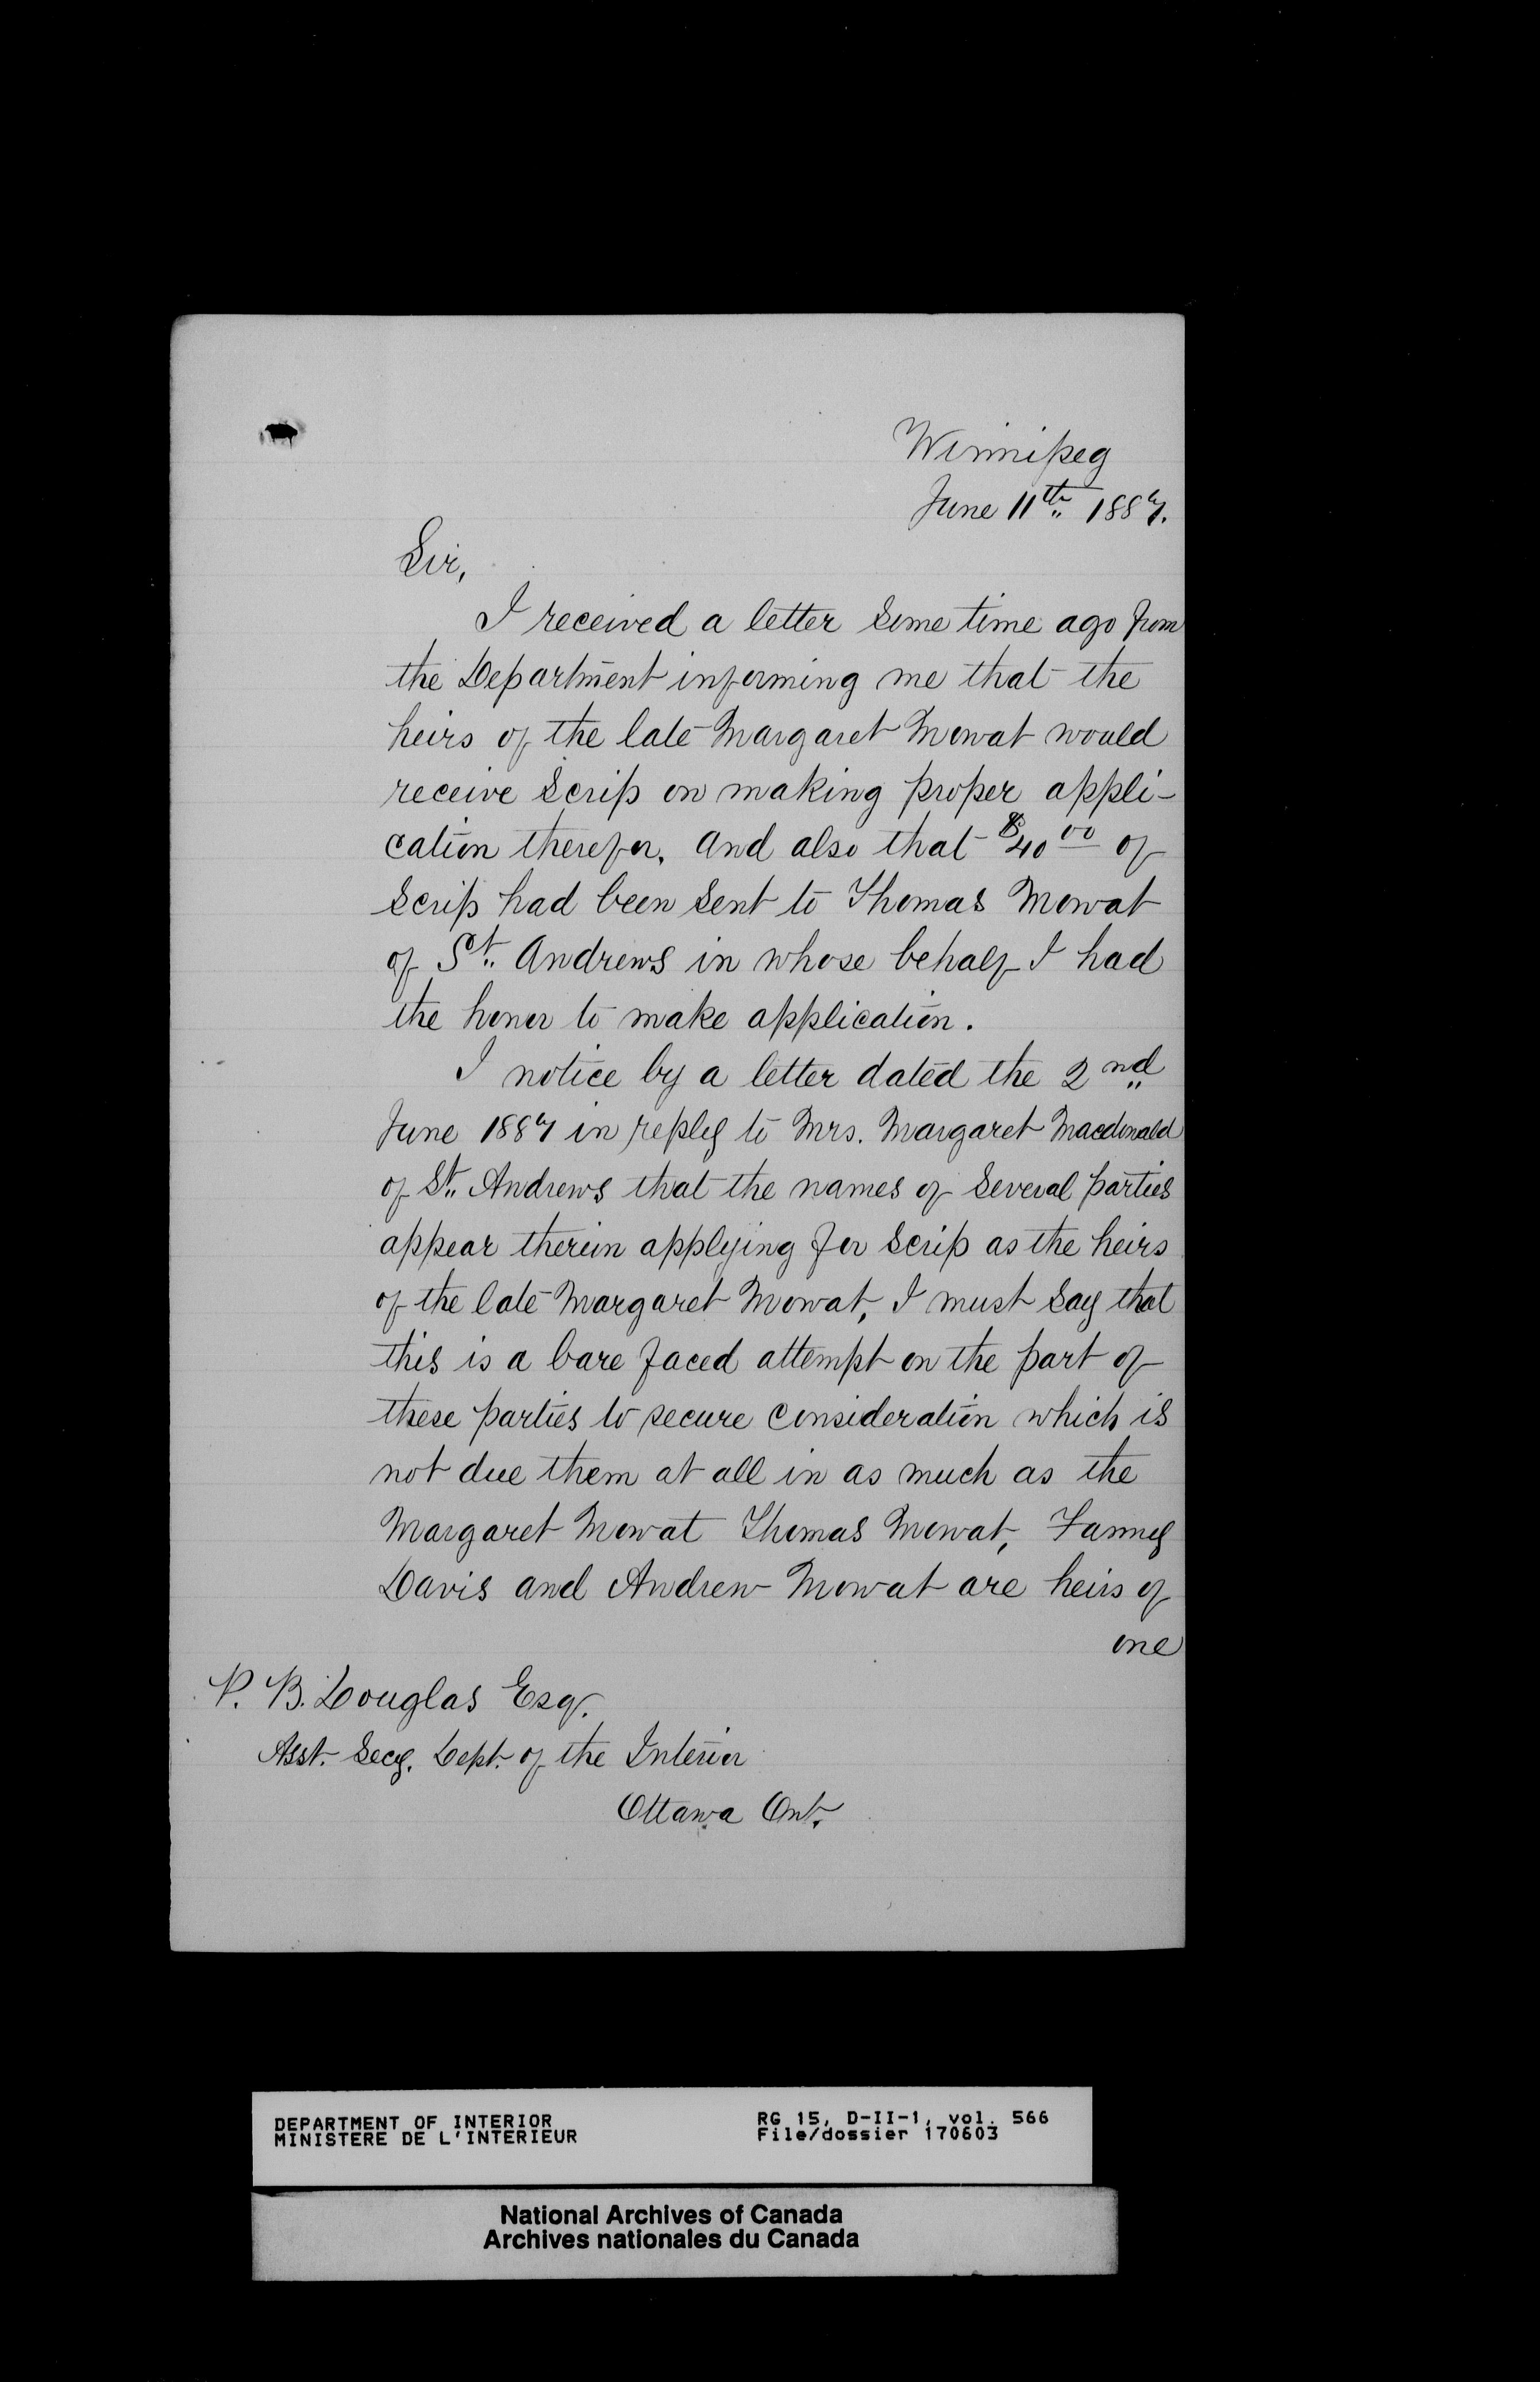 Winnipeg
June 11th 1887.
Sir,
I received a letter some time ago from
the Department informing me that the
heirs of the late Margaret Mowat would
receive Scrip on making proper appli-
cation therefor. And also that $40 00 of
Scrip had been sent to Thomas Mowat
of St. Andrews in whose behalf I had
the honor to make application.
I notice by a letter dated the 2nd
June 1887 in reply to Mrs. Margaret Macdonald
of St. Andrews that the names of several parties
appear therein applying for Scrip as the heirs
of the late Margaret Mowat, I must say that
this is a bare faced attempt on the part of
these parties to secure consideration which is
not due them at all in as much as the
Margaret Mowat Thomas Mowat, Fanny
Davis and Andrew Mowat are heirs of
one
P. B. Douglas Esq.
Asst. Secy. Dept. of the Interior
Ottawa Ont.
DEPARTMENT OF INTERIOR RG 15, D-II-1, vol. 566
MINISTERE DE L'INTERIEUR File/dossier 170603
National Archives of Canada
Archives nationales du Canada